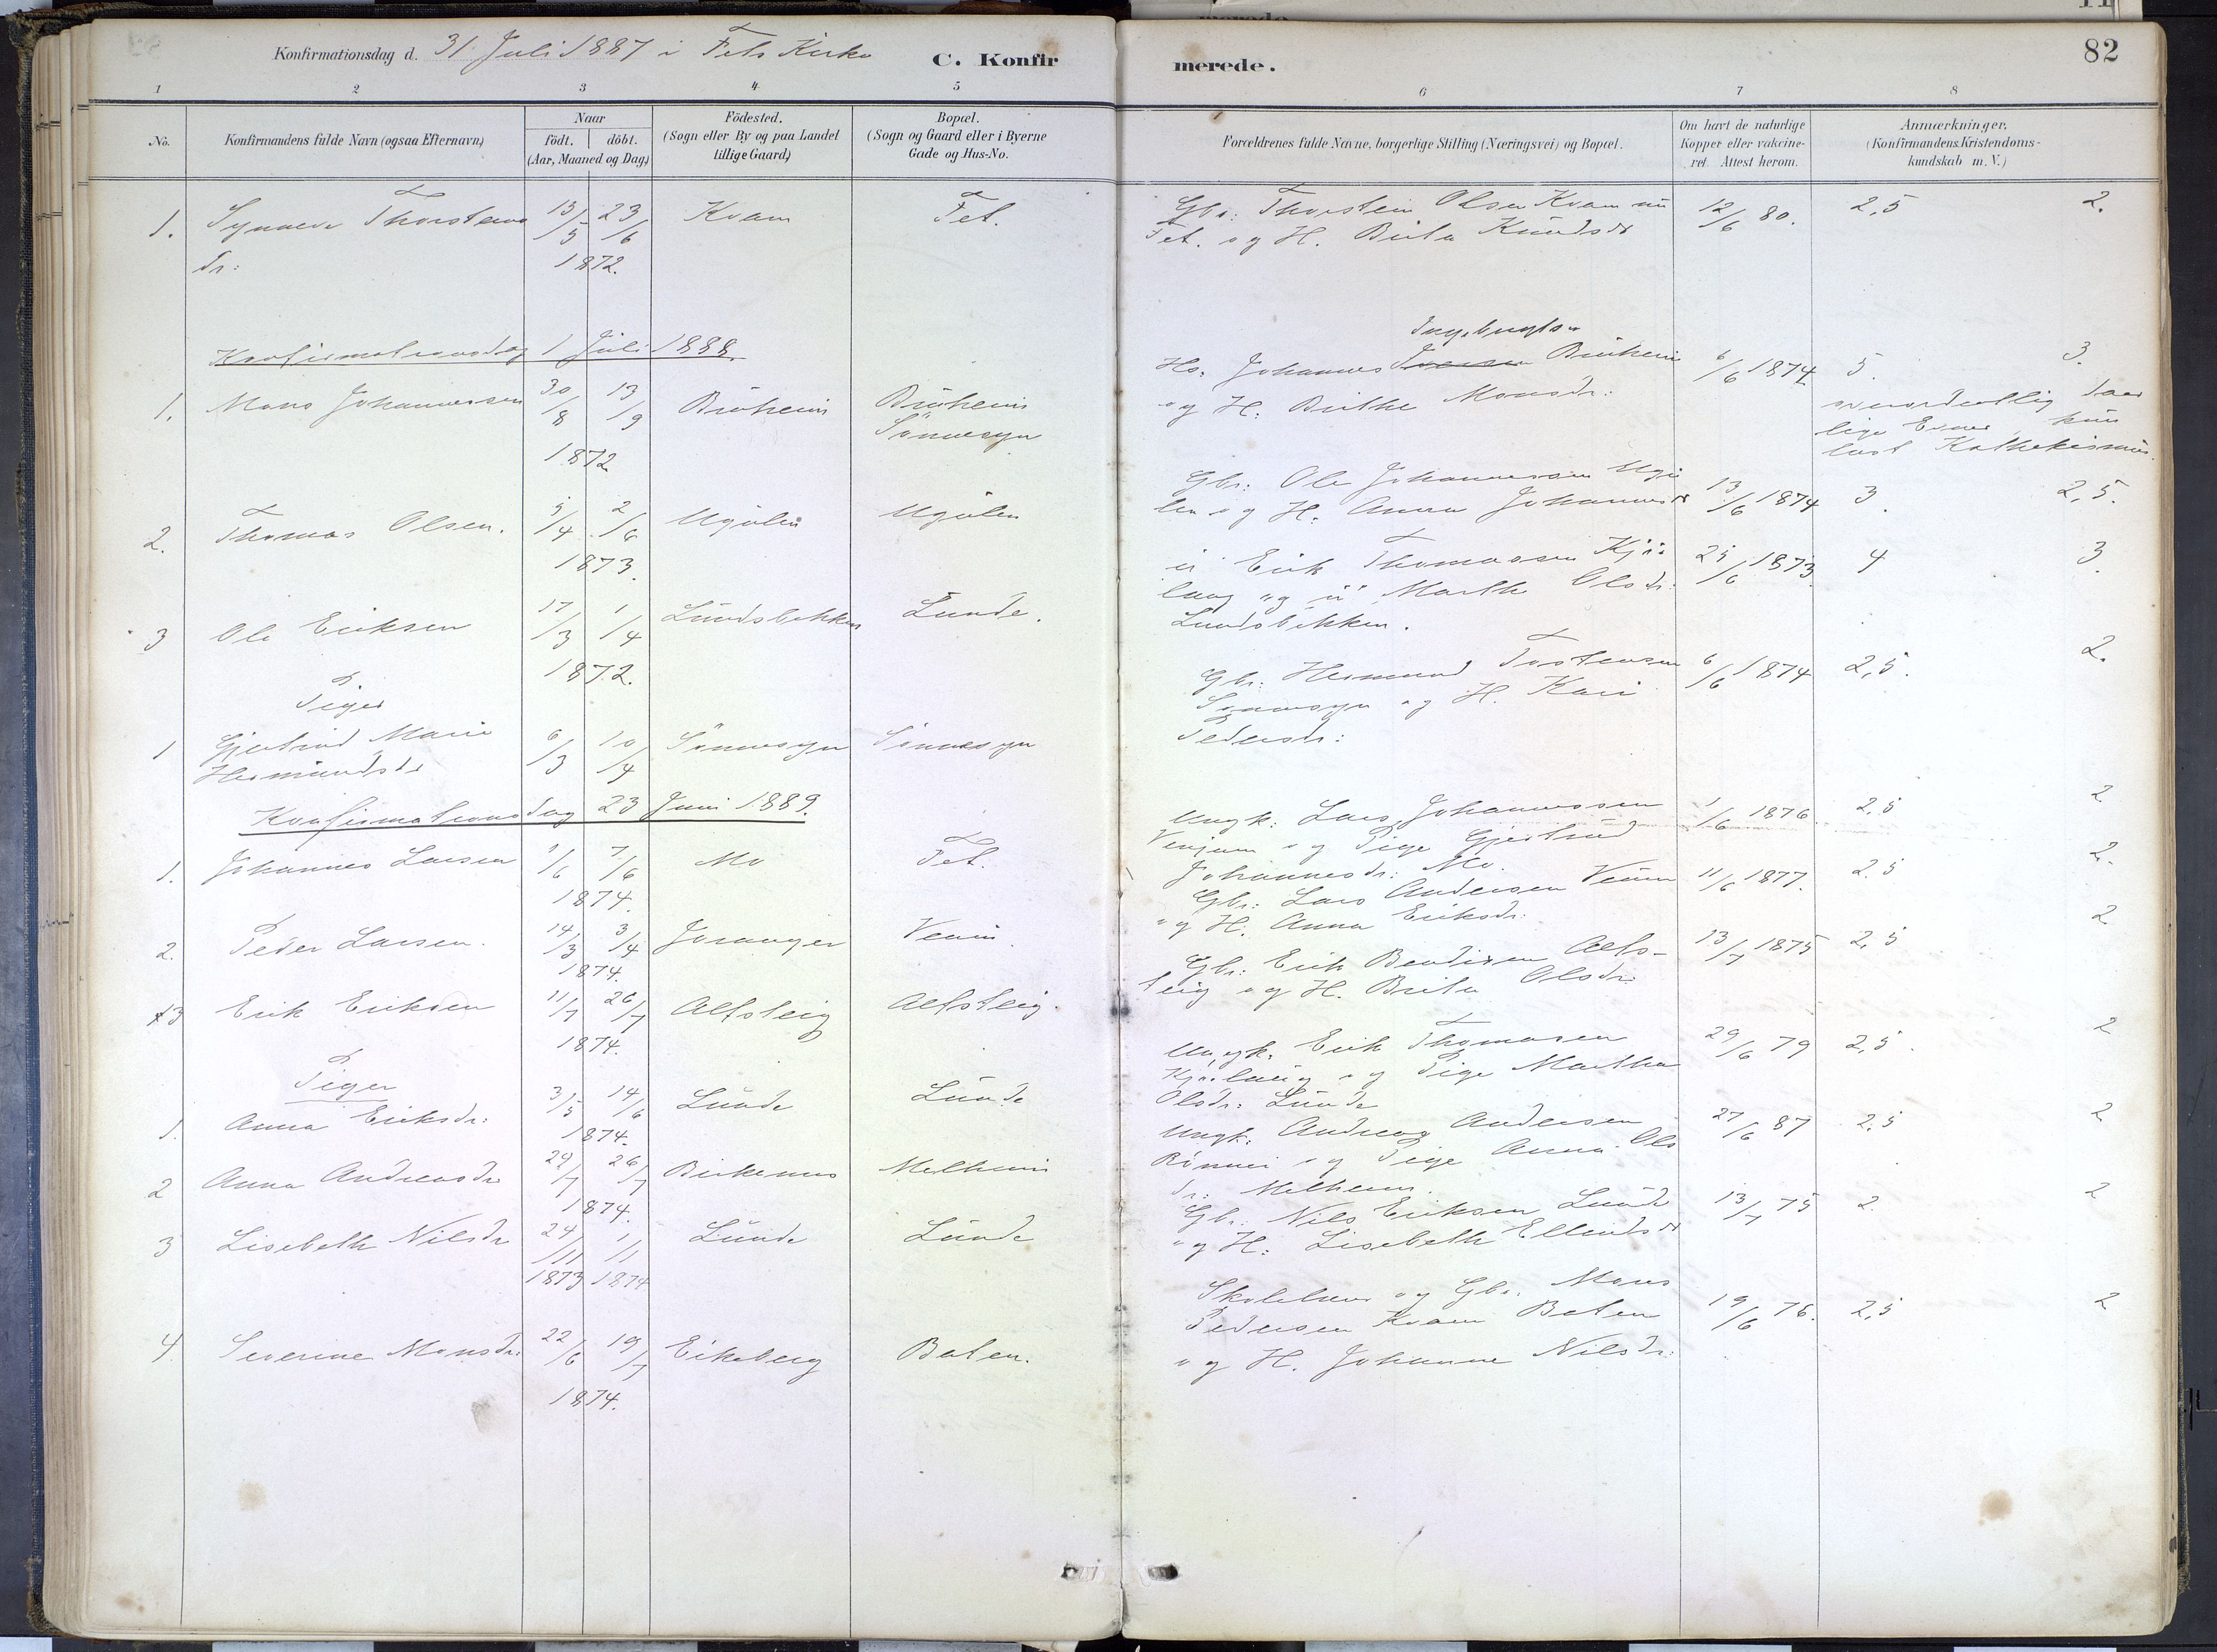 82
Konfirmationsdag d. 31 Juli 1887 i Fets Kirke
C. Konfirmerede.
1 2 3 4 5 6 7 8
No.
Konfirmandens fulde Navn (ogsaa Efternavn)
Naar
födt. döbt.
(Aar, Maaned og Dag)
Födested.
(Sogn eller By og paa Landet
tillige Gaard)
Bopæl.
(Sogn og Gaard eller i Byerne
Gade og Hus-No.
Forældrenes fulde Navne, borgerlige Stilling (Næringsvei) og Bopæl.
Om havt de naturlige
Kopper eller vakcine-
ret. Attest herom.
Anmærkninger.
(Konfirmandens Kristendoms-
kundskab m. V.)
1. Synneve Thorsteins 13/5 23/6 Kvam Fet. Gbr: Thorstein Olsen Kvam nu 12/6 80. 2,5 2.
dr: 1872. Fet. og H. Brita Knudsdr
Konfirmationsdag 1 Juli 1888.
Ingebrigtsen
1. Mons Johannessen 30/8 13/9 Hs. Johannes Bruheim 6/6 1874 5. 3.
Bruheim Bruheim og H. Brithe Monsdr:
Sønnesyn
1872
lige Evner, kun
læst Kathekismus.
2. Thomas Olsen. 5/4 2/6 Ugulen Ugulen Gbr: Ole Johannessen Ugu
1873. len og H. Anna Johannesdr 13/6 1874 3. 2,5.
3 Ole Eriksen 17/3 1/4 Lundsbekken Lunde. Erik Thomassen Kjør 25/6 1873. 4 3.
1872. laug og Marthe Olsdr:
Lundsbekken.
Piger
1 Gjertrud Marie 6/3 10/4 Sønnesyn Sønnesyn Gbr. Hermund Tostensen 6/6 1874 2,5. 2.
Hermundsdr Sønnesyn og H. Kari
Pedersdr:
Konfirmationsdag 23 Juni 1889.
1. Johannes Larsen 1/6 7/6 Mo Fet. Ungk: Lars Johannessen 1/6 1876 2,5 2
1874. Venjum og Pige Gjertrud
Johannesdr: Mo.
2. Peder Larsen. 14/3 3/4 Joranger Veum. Gbr: Lars Andersen Veum 11/6 1877. 2.5 2.
1874. og H. Anna Eriksdr:
3 Erik Eriksen 11/7 26/7 Alfsteig Alfsteig. Gbr: Erik Bendixen Alfs- 13/7 1875 2,5 2
1874. teig og H. Brita Olsdr:
Piger
1. Anna Eriksdr: 3/5 14/6 Lunde Lunde Ungk. Erik Thomasen 29/6 79 2,5. 2
1874. Kjørlaug og Pige Martha
Olsdr: Lunde
2 Anna Andreasdr 24/7 26/7 Melheim Ungk: Andreas Andersen 27/6 87 2,5 2
1874. og Pige Anna Ols
dr: Melheim.
3 Lisebeth Nilsdr 24/11 1/11 Lunde Lunde Gbr: Nils Eriksen Lunde 13/7 75 2. 2
1873 1874 og H: Lisebeth Ellendsdr
Skolelærer og Gbr. Mons
4. Severine Monsdr: 22/6 19/7 Eikeberg Baten. Pedersen Kvam Baten 19/6 76. 2,5 2
1874. og H. Johanne Nilsdr: